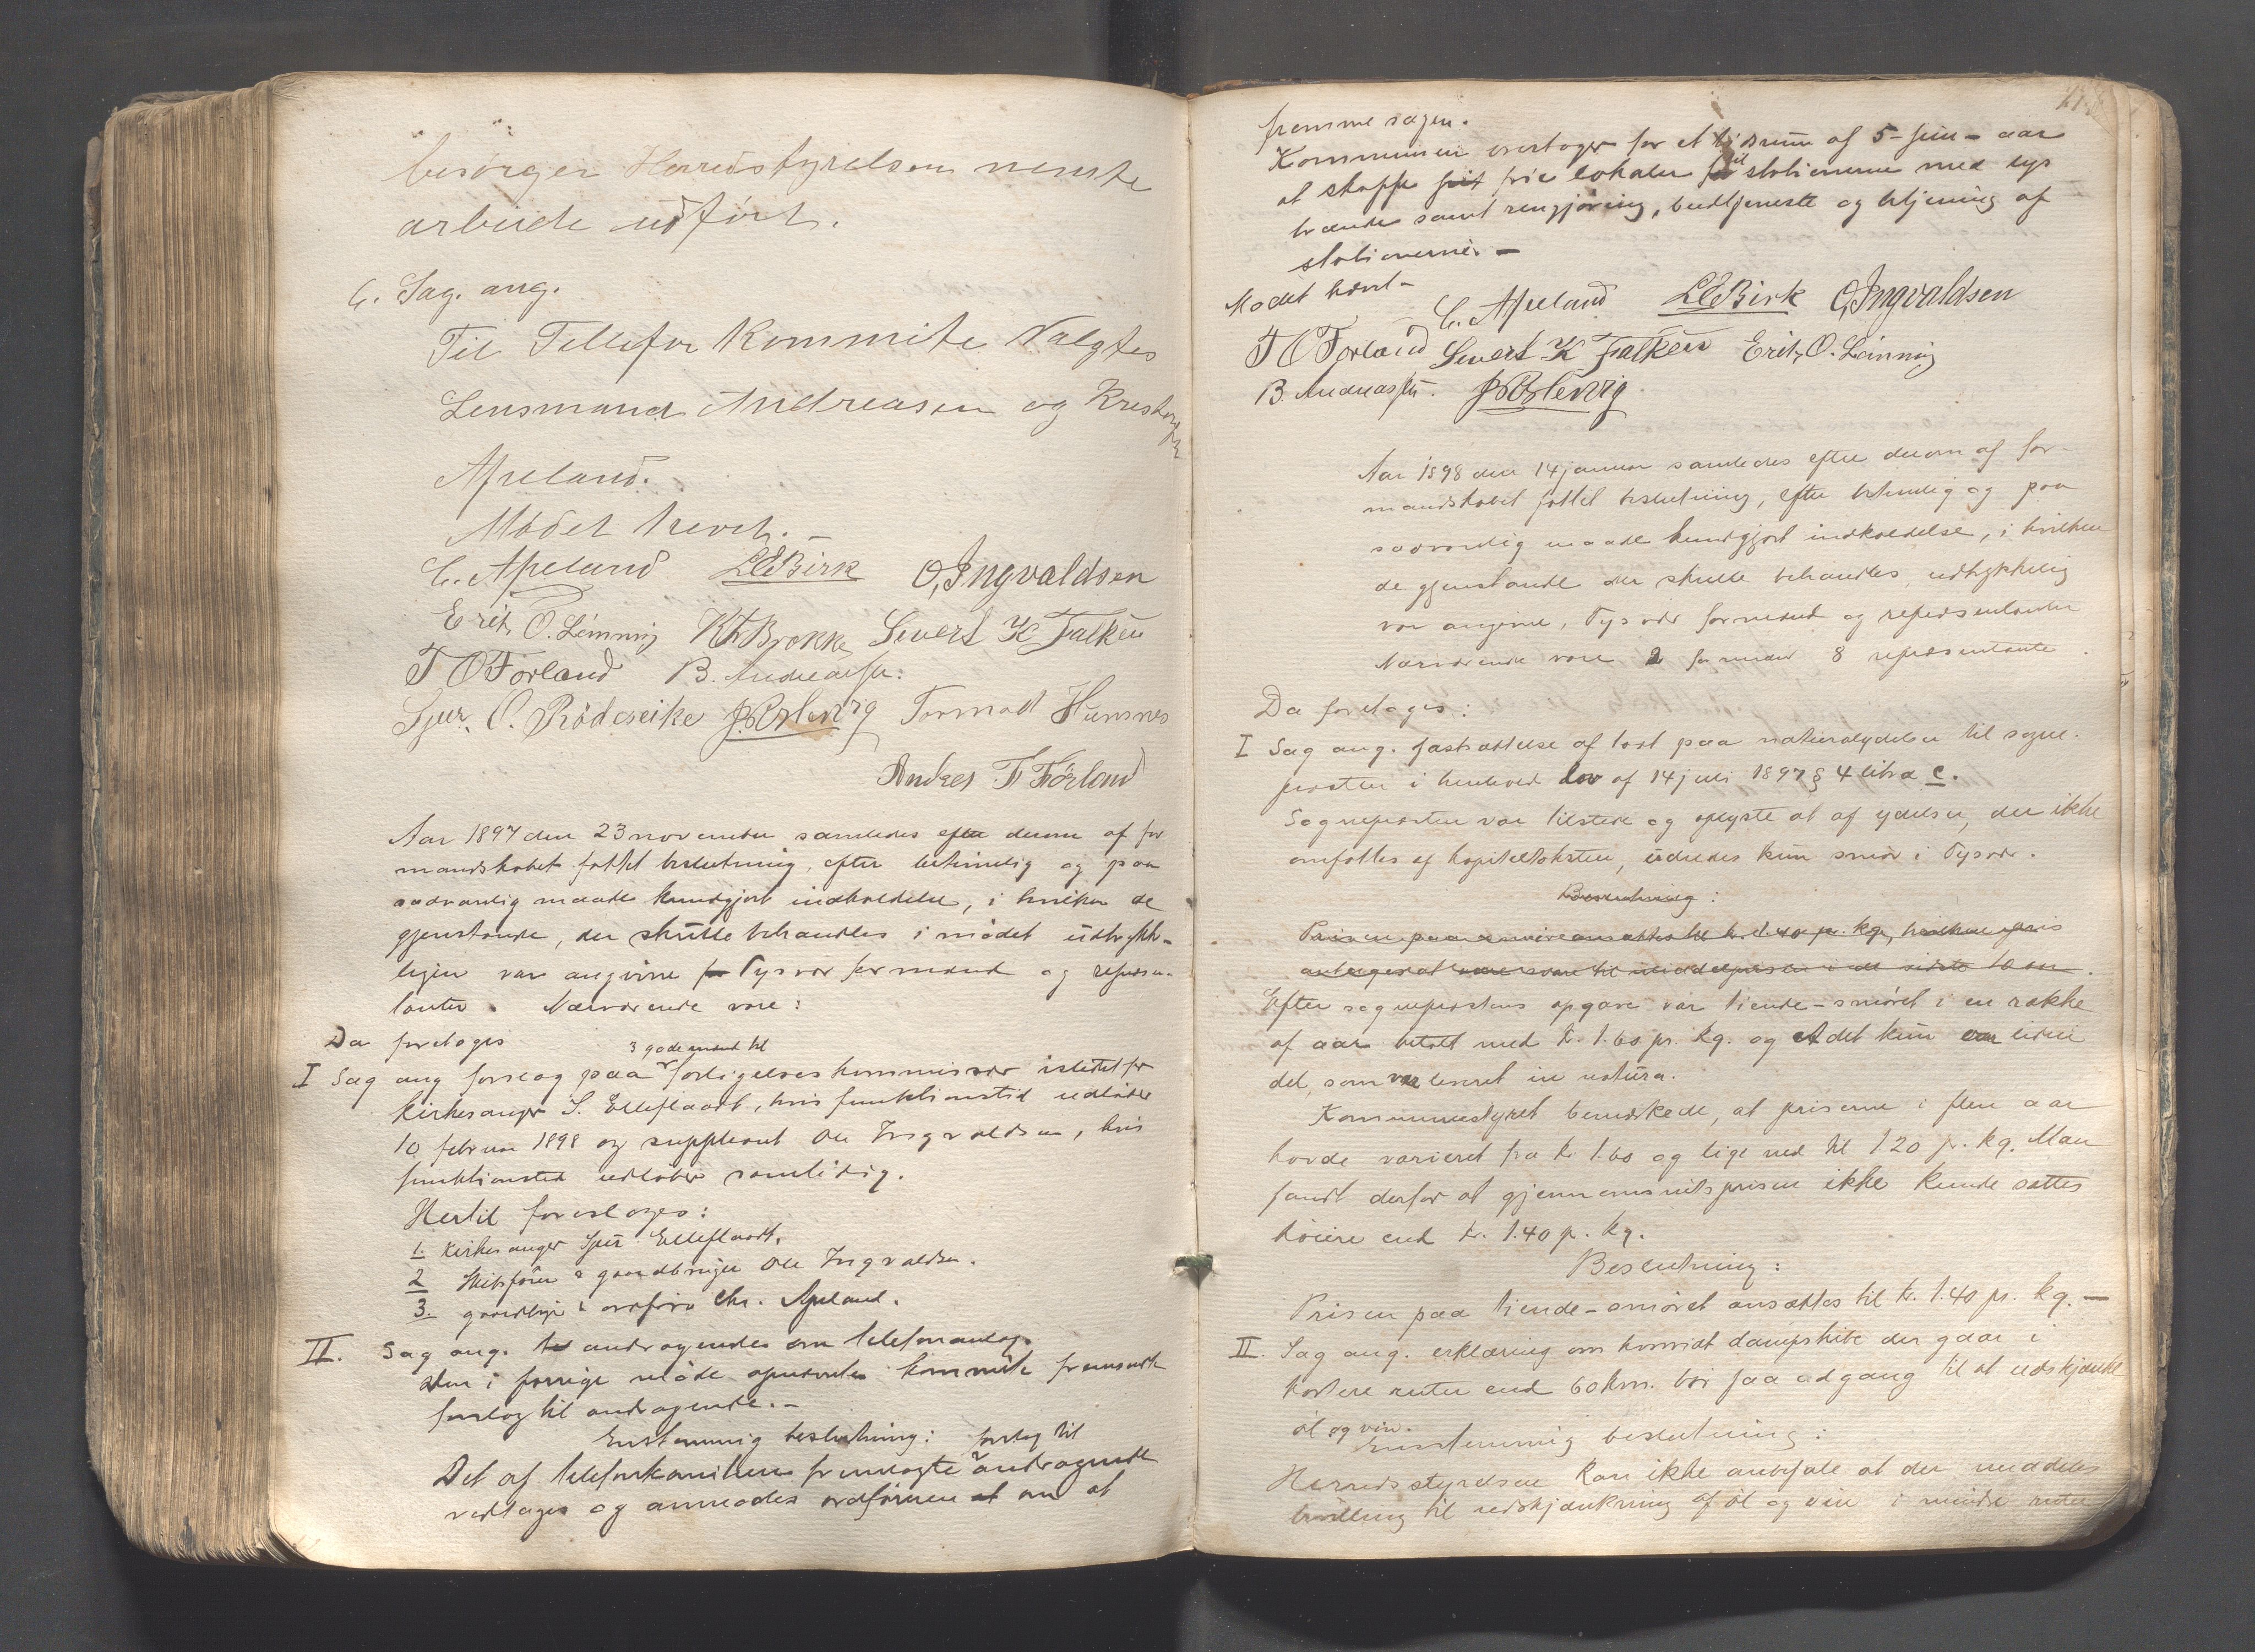 besörger Herredstyrelsen
arbeide udført.
6. Sag. ang.
Til Tellefon Kommite Valgtes
Lensmand Andreasen og Kristoffer
Apeland.
Mödet hevet. –
C. Apeland LEBirk O, Ingvaldsen
Erik O. Lönning Sivert K Falkeu
T O Forland B. Andreassen.
Sjur. O. Rödeseike Tormod Hunsnes
Andres TFörland
Aar 1897 den 23 november samledes efter derom af for
mandskabet fattet beslutning, efter betimelig og paa
sædvanlig maade kundgjort indkaldelse, i hvilken de
gjenstande, der skulle behandles i mødet udtrykke-
ligen var angivne Tysvær formænd og repræsen-
tanter. Nærværende vare:
Da foretoges
3 gode mænd til
I Sag ang forslag paa forligelseskommissær istedet for
kirkesanger S. Elleflaadt, hvis funktionstid udløber
10 februar 1898 og suppleant Ole Ingvaldsen, hvis
funktionstid udløber samtidig.
Hertil foresloges:
1. Kirkesanger Sjur Elleflaadt.
2 Skibsfører & gaardbruger Ole Ingvaldsen.
3. gaardbr. & ordfører Chr. Apeland.
II. Sag ang. andragendes om telefonanlæg.
Den i forrige møde opnævnte kommite fremsatte
forslag til andragende. –
Enstemmig beslutning: forslag til
Det af telefonkomiteen fremlagte andragende
vedtages og anmodes ordføreren om at
fremme sagen.
Kommunen overtager for et tidsrum af 5 – fem – aar
at skaffe frie lokaler til stationerne med lys
brænde samt rengjøring, budtjeneste og betjening af
stationerne. –
Mødet hævet –
C. Apeland LEBirk O, Ingvaldsen
T O Forland Sivert K Falkeu Erik, O. Lönning
B. Andreassen.
Aar 1898 den 14 januar samledes efter derom af for-
mandskabet fattet beslutning, efter betimelig og paa
sædvanlig maade kundgjort indkaldelse, i hvilken
de gjenstande der skulle behandles, udtrykkelig
var angivne, Tysvær formænd og repræsentanter
Nærværende vare 2 formænd 8 repræsentanter.
Da foretoges:
I Sag ang. fastsættelse af taxt paa naturalydelser til sogne-
præsten i henhold lov af 14 juli 1897 § 4 litra c.
Sognepræsten var tilstede og oplyste at af ydelser, der ikke
omfattes af kapiteltaksten, udredes kun smør i Tysvær.
Beslutning:
Prisen paa smør ansættes til kr. 1.40 pr. kg, hvilken pris
antages at være svare til middelprisen i de sidste 10 aar.
Efter sognepræstens opgave var tiende-smøret i en række
af aar betalt med kr. 1.60 pr. kg. og at det kun var liden
del, som var leveret in natura.
Kommunestyret bemærkede, at priserne i flere aar
havde varieret fra kr 1.60 og lige ned til 1.20 pr. kg. Man
fandt derfor at gjennemsnitsprisen ikke kunde sættes
høiere end kr. 1.40 p. kg.
Beslutning:
Prisen paa tiende-smøret ansættes til kr. 1.40 pr. kg. –
II. Sag ang. erklæring om hvorvidt dampskibe der gaar i
kortere ruter end 60 km. bør faa adgang til at udskjænke
øl og vin.
Enstemmig beslutning:
Herredsstyrelsen kan ikke anbefale at der meddeles
bevilling til udskjænkning af øl og vin i mindre ruter